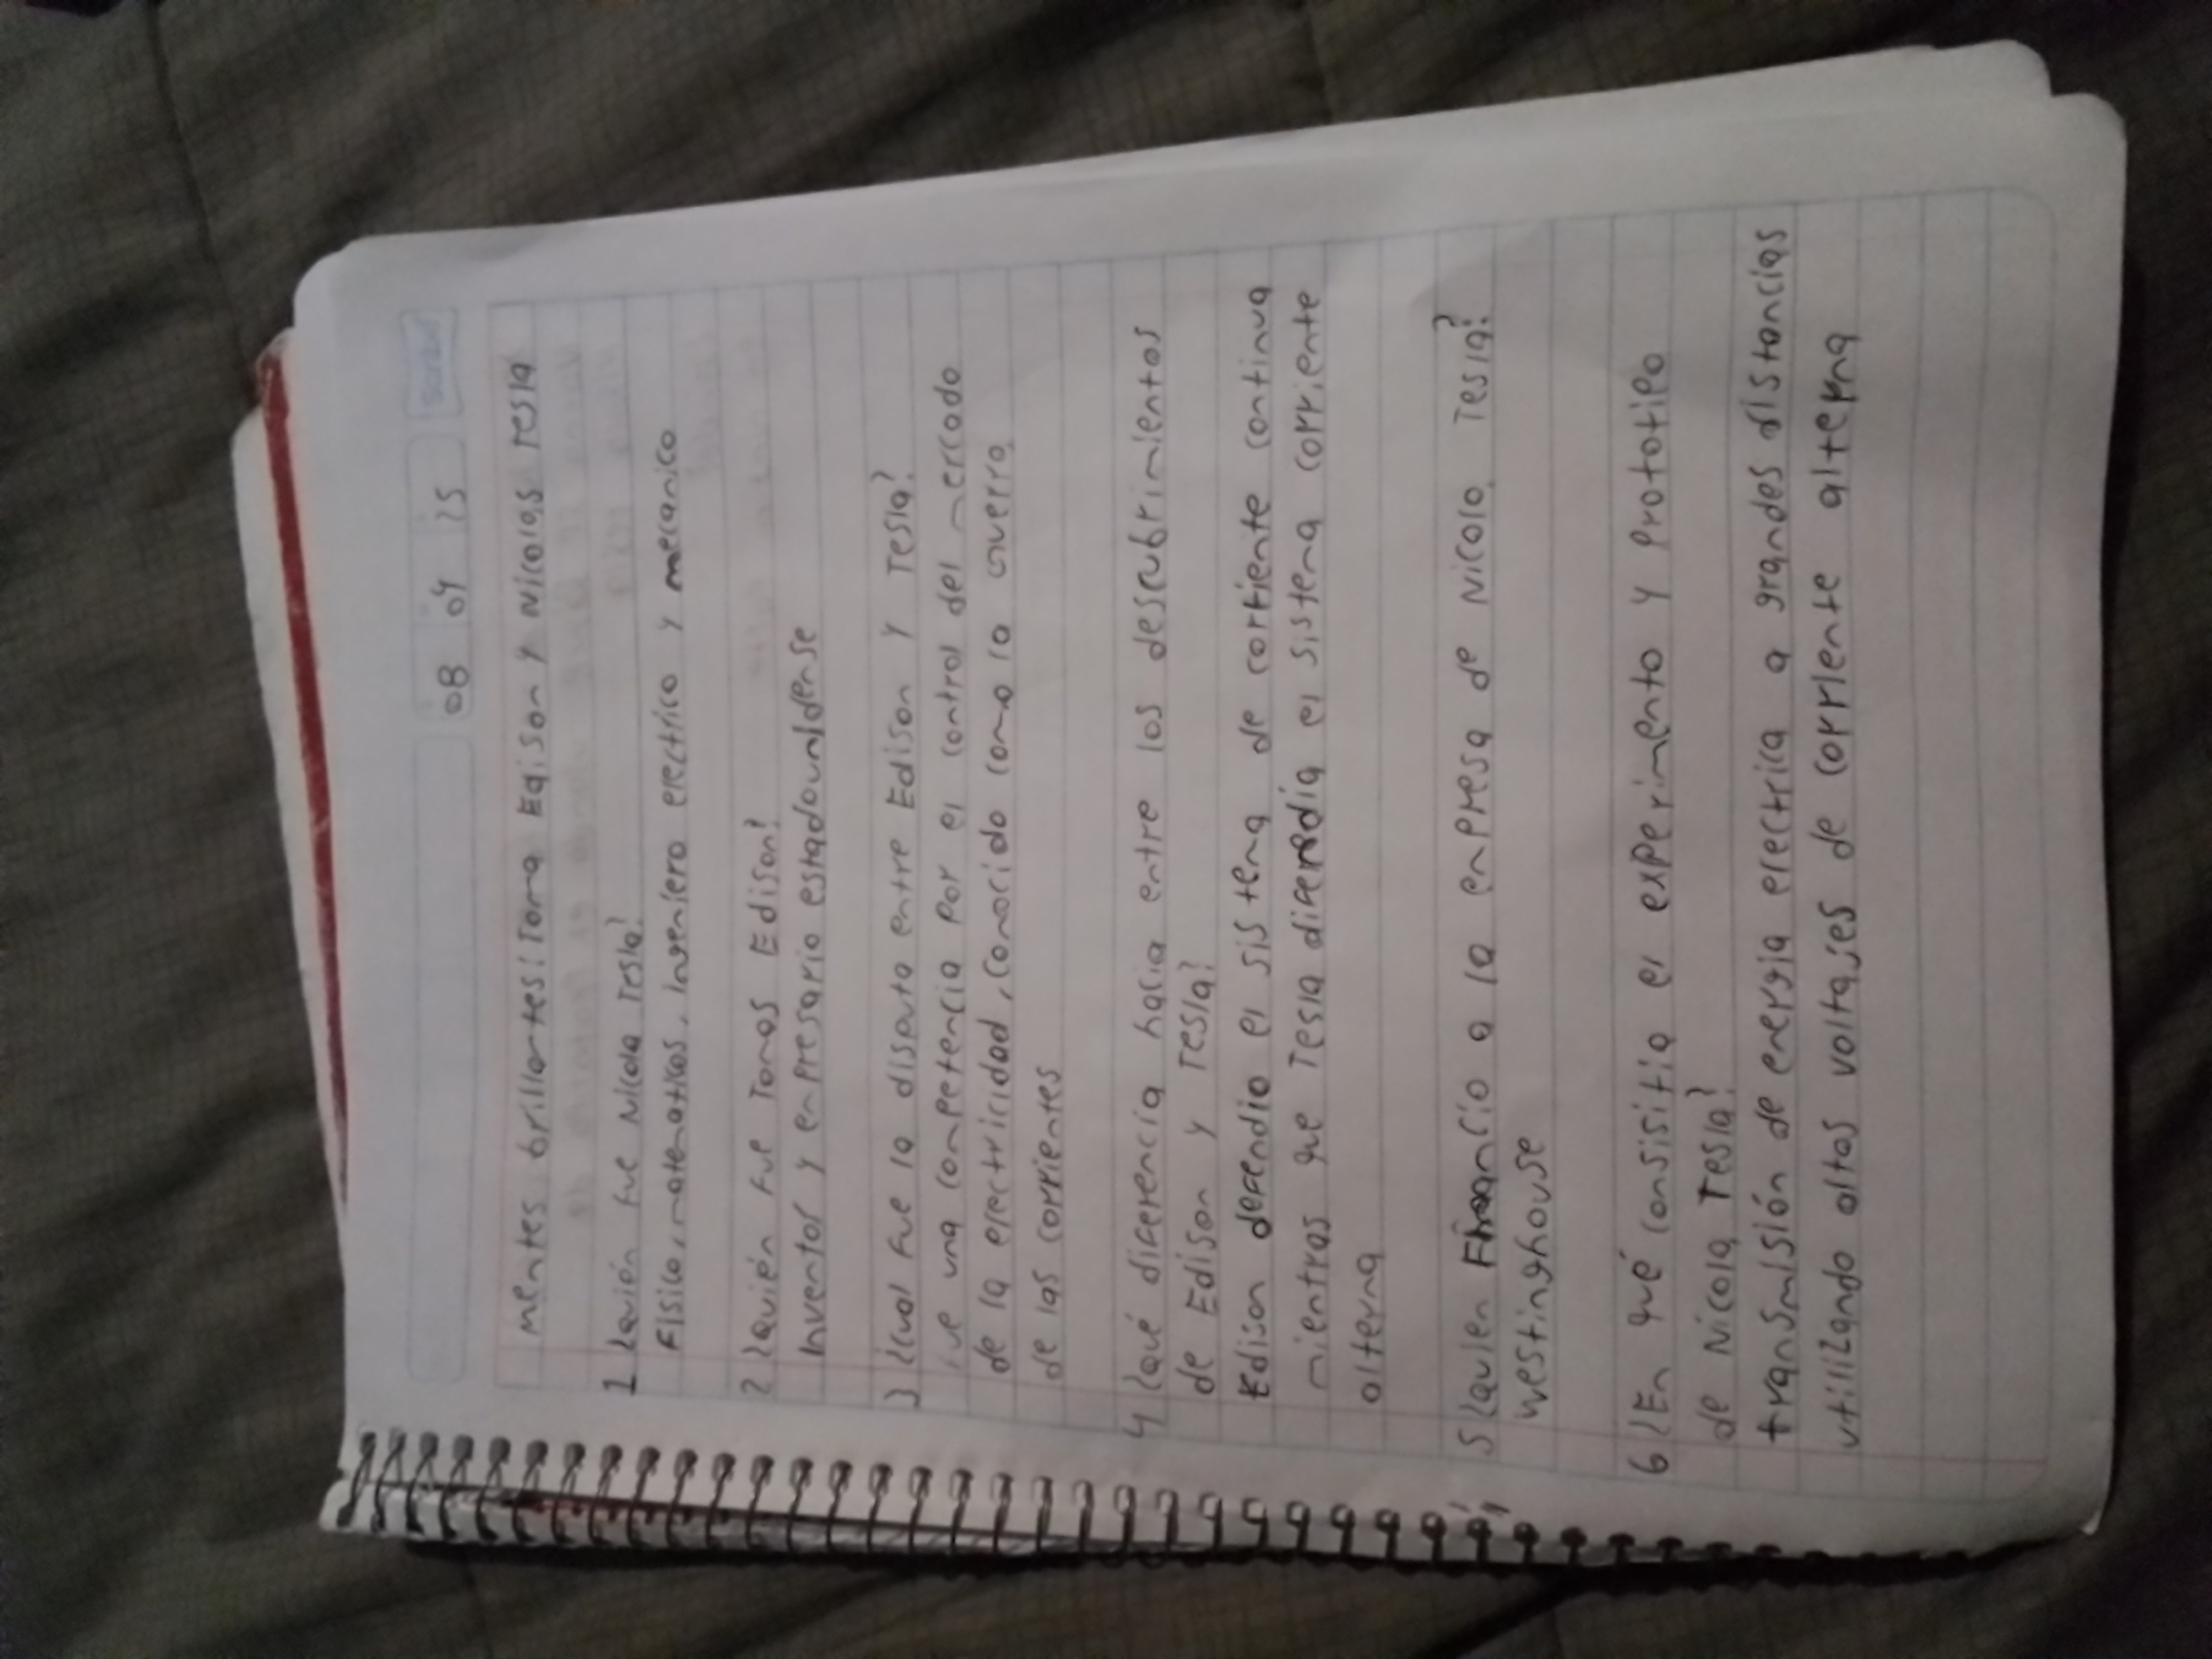 08 04 25
Mentes brillantes: Toma Edison y Nicolas Tesla
1 ¿Quién fue Nicola Tesla?
Fisico, matematicos, Ingeniero electrico y mecanico
2 ¿Quién fue Tomas Edison?
Inventor y enpresario estadounidense
3 ¿Cual fue la disputa entre Edison y Tesla?
fue una competencia por el control del mercado
de la electricidad, conocido como la guerra
de las corrientes
4 ¿Qué diferencia hacia entre los descubrimientos
de Edison y Tesla?
Edison defendio el sistema de corriente continua
mientras que Tesla difendia el sistema corriente
alterna
5 ¿Quien Financio a la enpresa de Nicola Tesla?
Westinghouse
6 ¿En qué consisitia el experimento y prototipo
de Nicola Tesla?
transmisión de energia electrica a grandes distancias
utilizando altos voltajes de corriente alterna